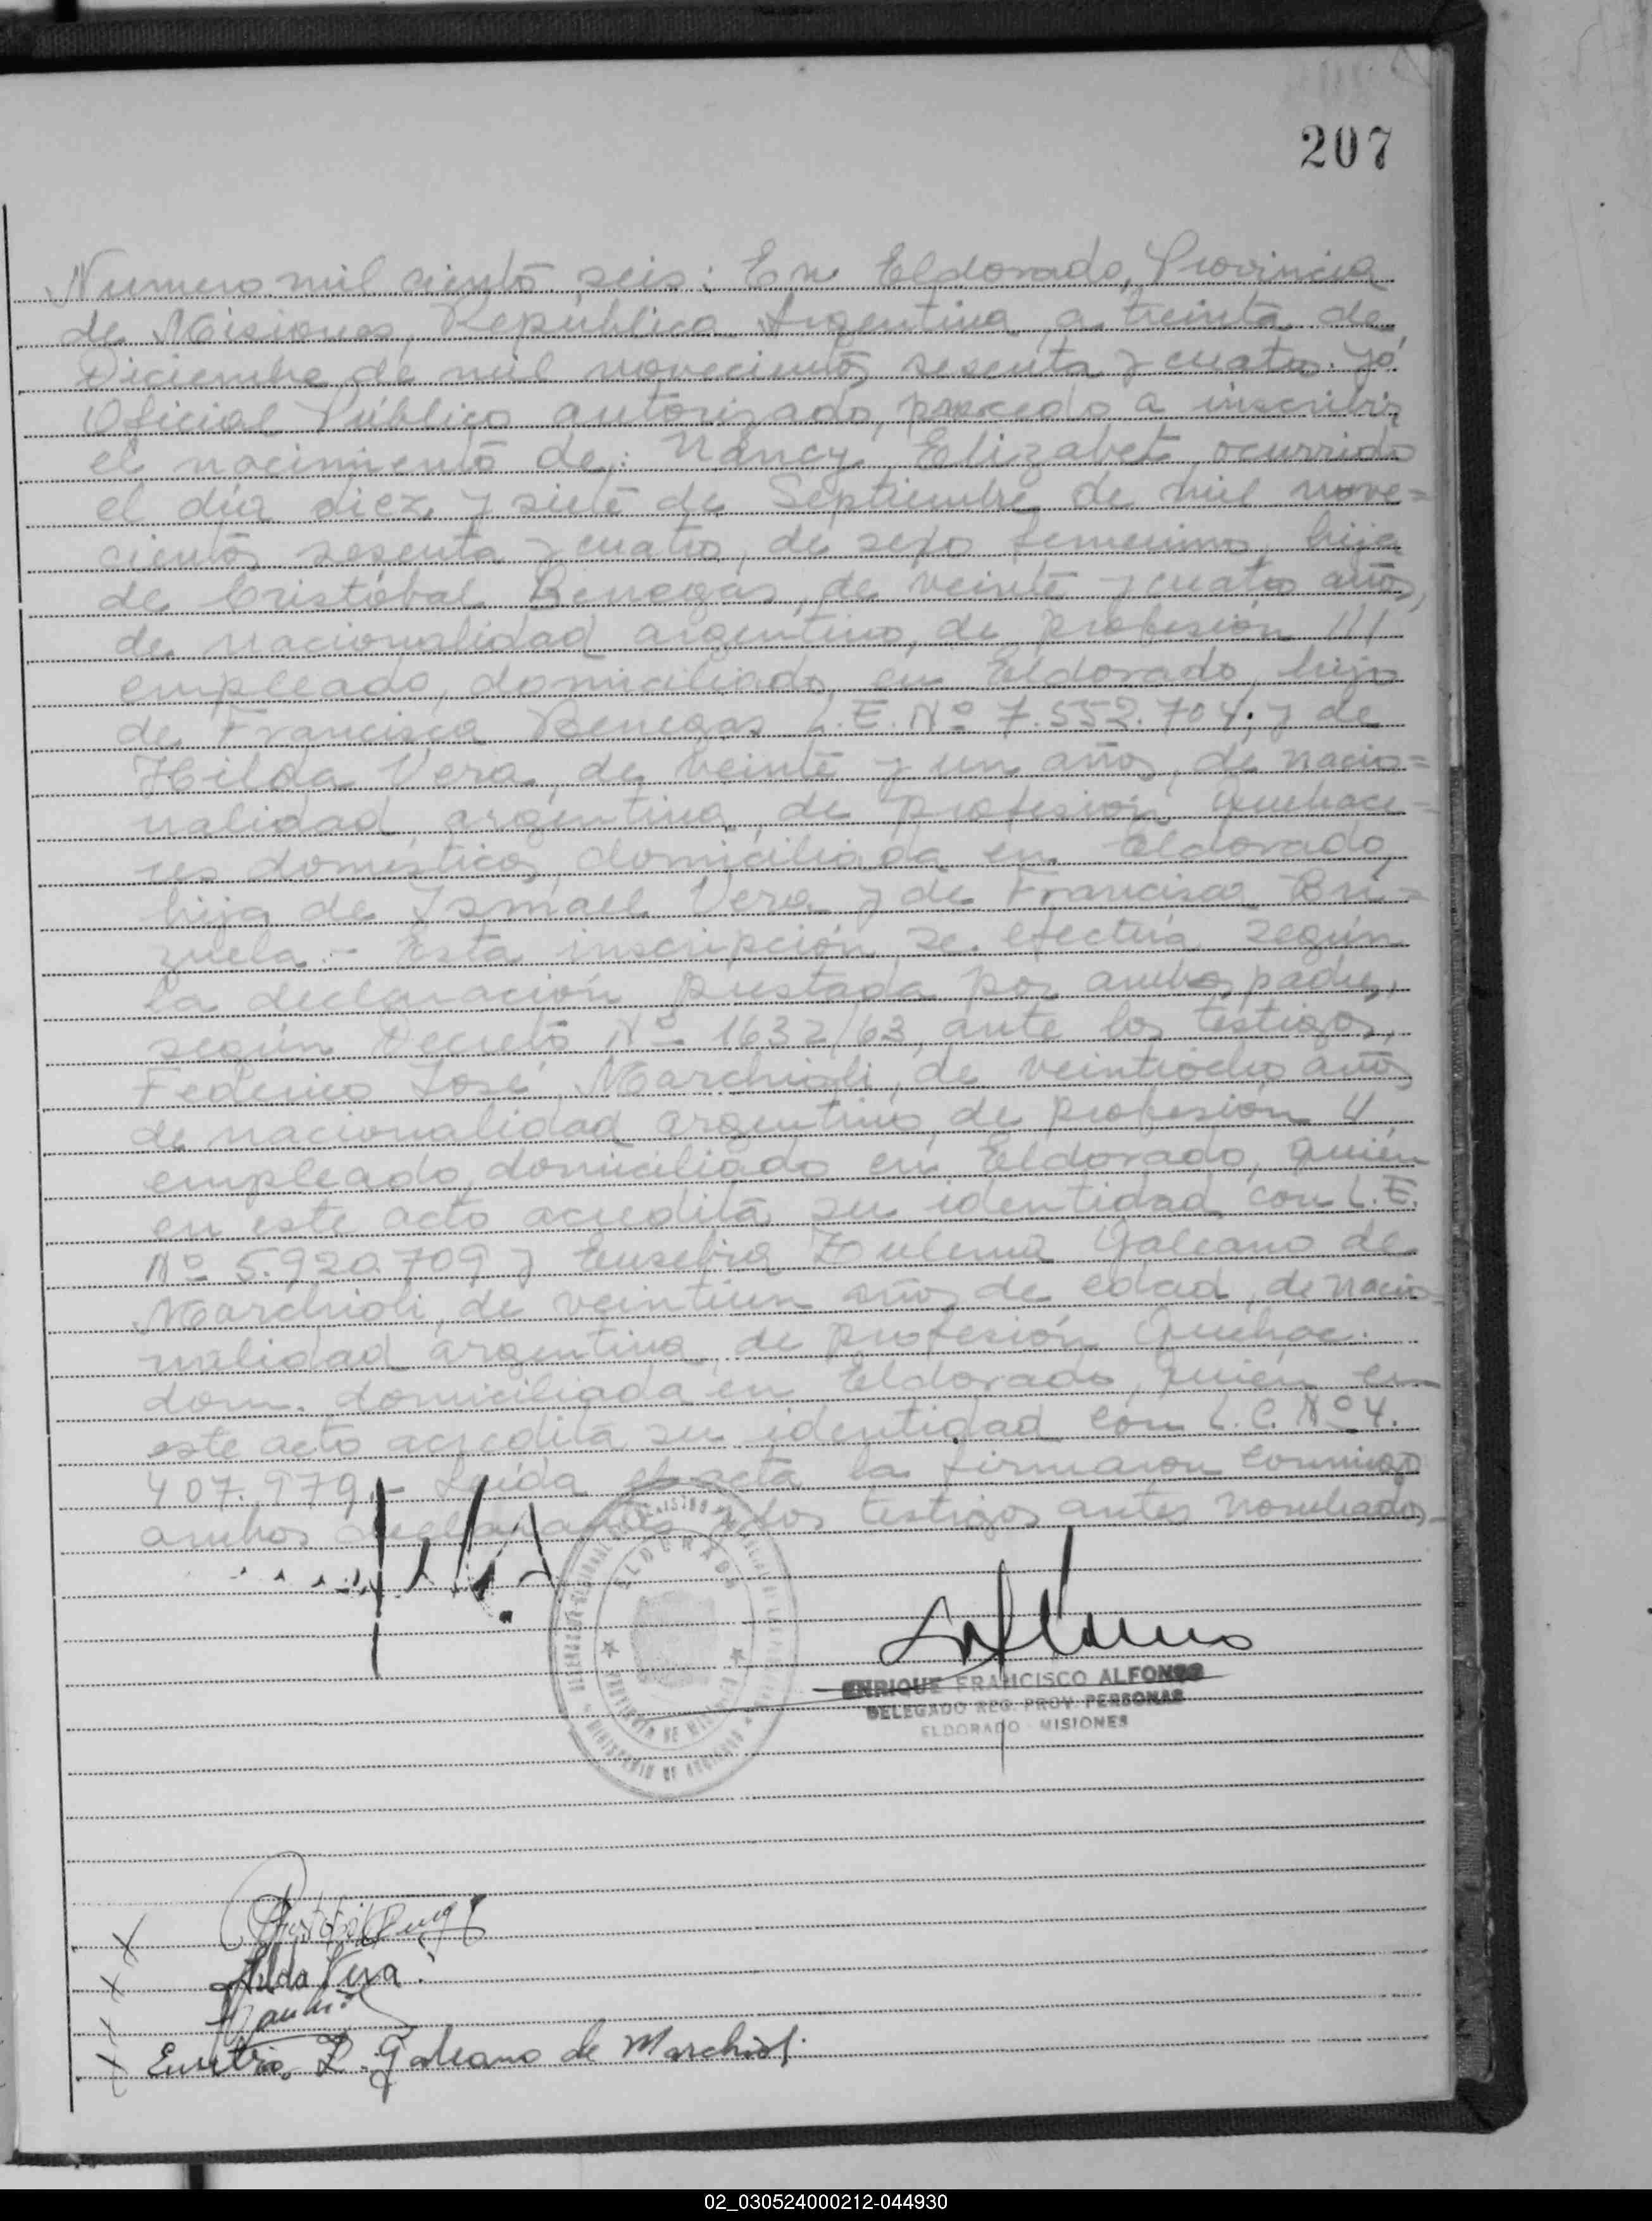 207
Numero mil ciento seis: En Eldorado, Provincia
de Misiones, República Argentina, a treinta de
Diciembre de mil novecientos sesenta y cuatro. Yo
Oficial Público autorizado, procedo a inscribir
el nacimiento de: Nancy Elizabet, ocurrido
el día diez y siete de Septiembre de mil nove=
cientos sesenta y cuatro, de sexo femenino, hija
de Cristóbal Benegas, de veinte y cuatro años,
de nacionalidad argentino, de profesión ///
empleado, domiciliado en Eldorado, hijo
de Francisca Benegas L.E. Nº 7.552.704, y de
Hilda Vera, de veinte y un años, de nacio=
nalidad argentina, de profesión Quehace=
res domésticos, domiciliada en Eldorado,
hija de Ismael Vera y de Francisca Bri=
zuela.- Esta inscripción se efectúa según
la declaración prestada por ambos padres,
según Decreto Nº 1632/63, ante los testigos,
Federico José Marchioli, de veintiocho años
de nacionalidad argentino, de profesión //
empleado, domiciliado en Eldorado, quién
en este acto acredita su identidad con L.E.
Nº 5.920.709 y Eusebia Zulema Galeano de
Marchioli, de veintiun años de edad, de nacio-
nalidad argentina, de profesión Quehac.
dom. domiciliada en Eldorado, quién en
este acto acredita su identidad con L.C. Nº 4.
407.979.- Leída el acta la firmaron conmigo
ambos declarantes y los testigos antes nombrados.-
ELDORADO
PROVINCIA DE MISIONES
MINISTERIO DE GOBIERNO
ENRIQUE FRANCISCO ALFONSO
DELEGADO REG. PROV. PERSONAS
ELDORADO - MISIONES
X
X Hilda Vera
X Z. Galeano de Marchioli
02_030524000212-044930